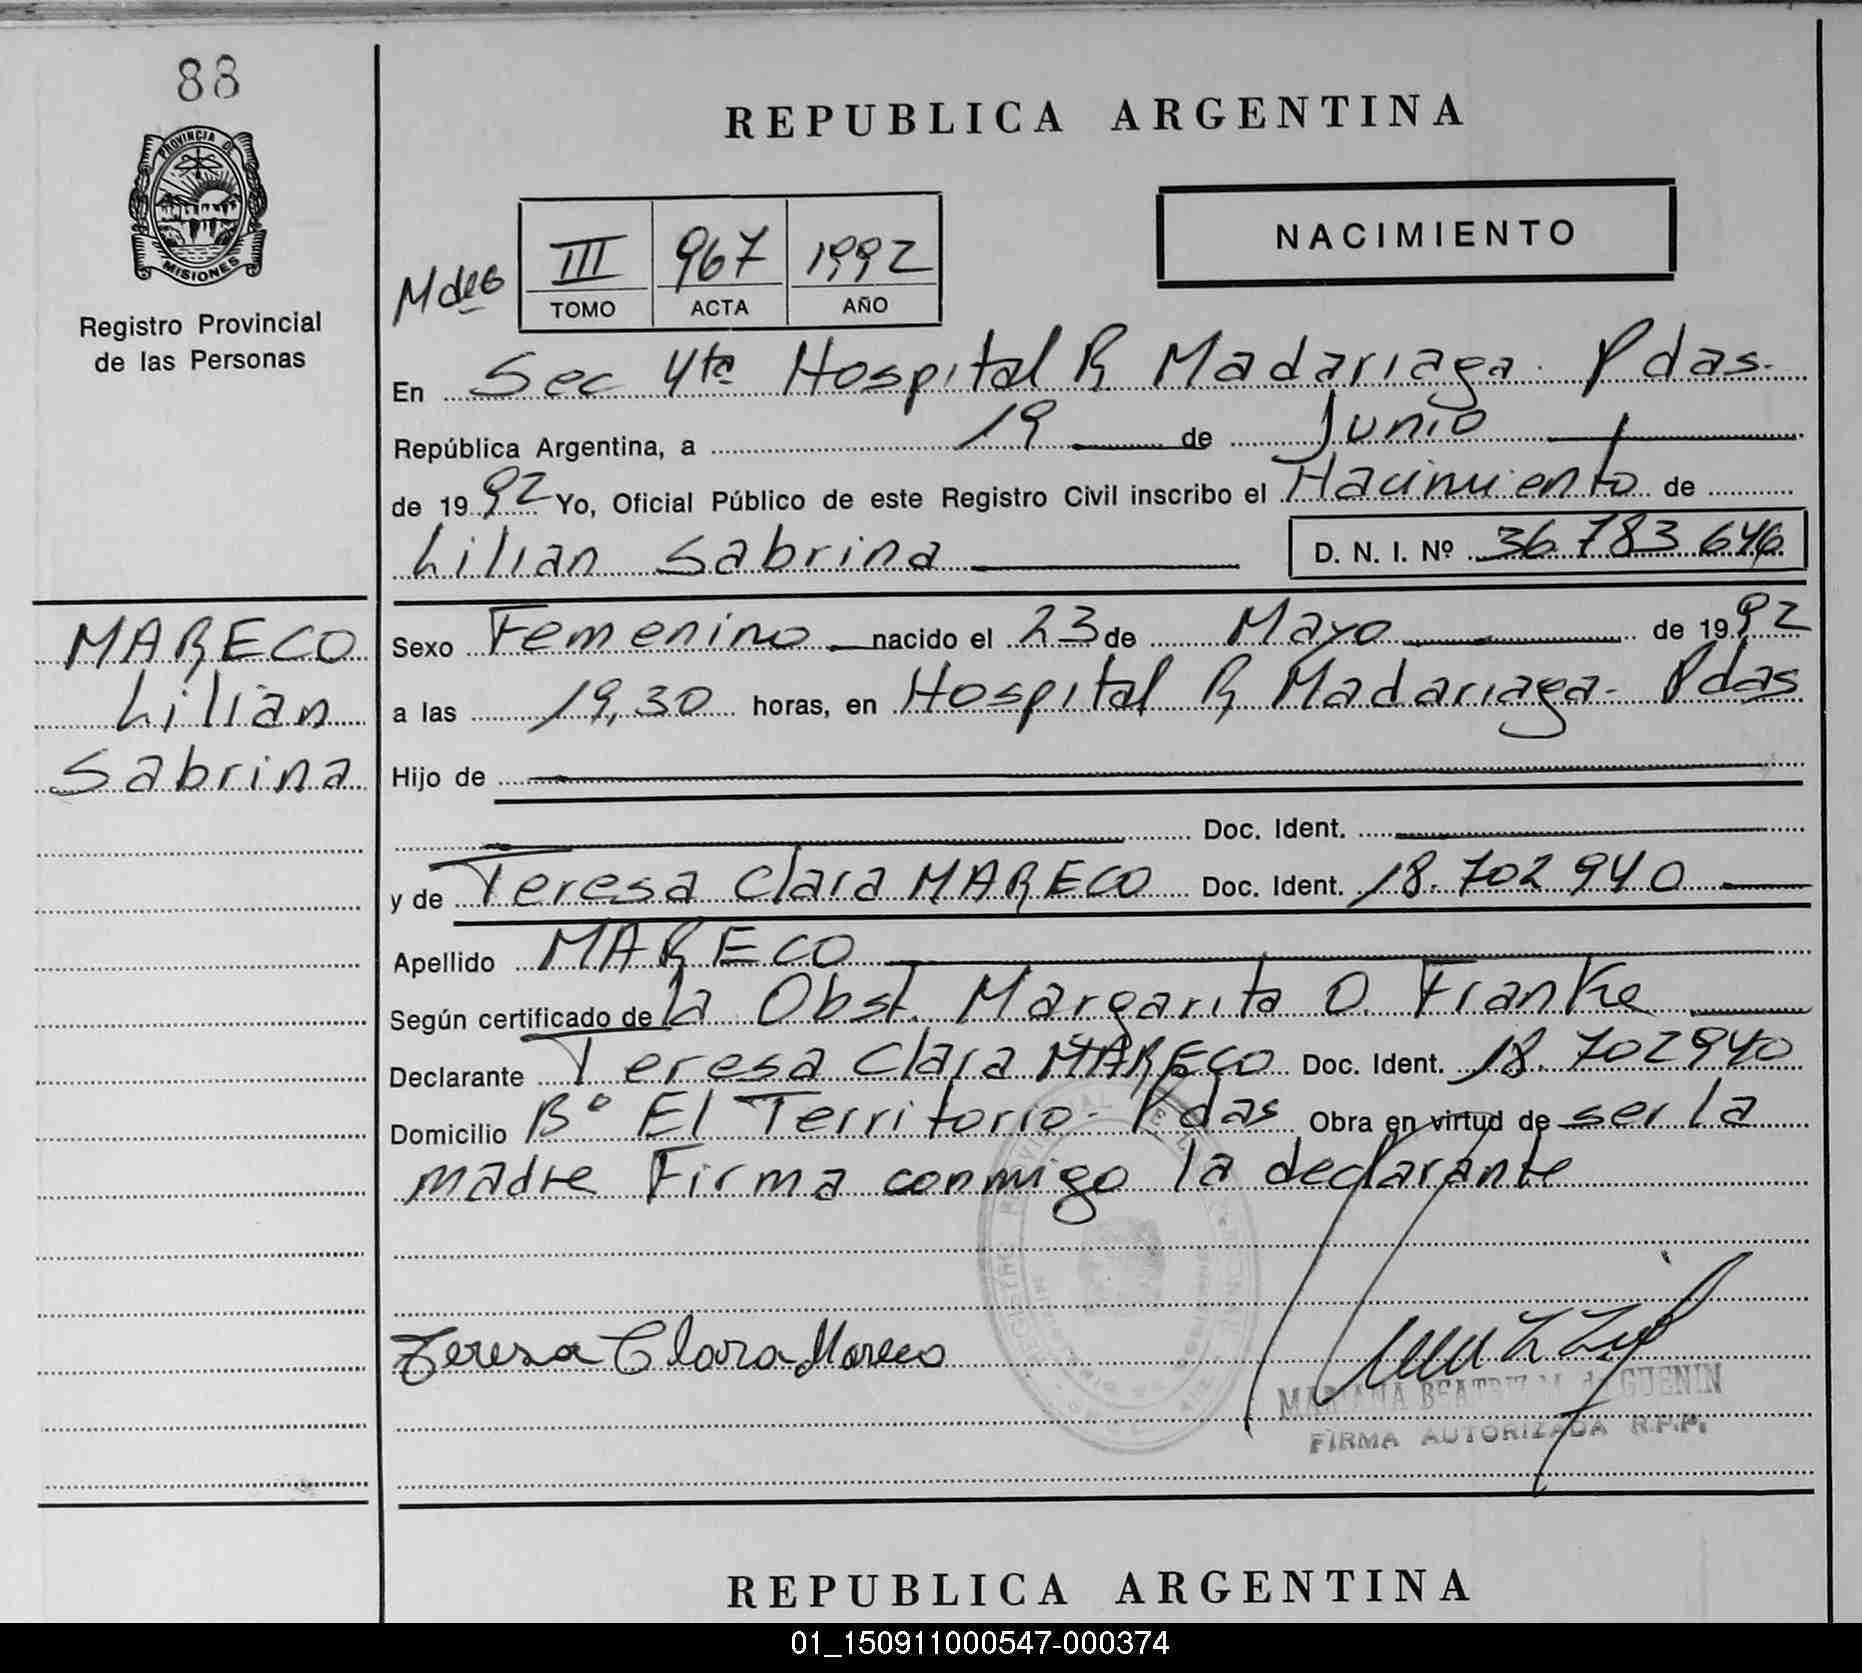 88
PROVINCIA DE
MISIONES
Registro Provincial
de las Personas
REPUBLICA ARGENTINA
NACIMIENTO
III 967 1992
TOMO ACTA AÑO
En Sec 4ta Hospital R Madariaga. Pdas.
República Argentina, a 19 de Junio
de 1992 Yo, Oficial Público de este Registro Civil inscribo el Nacimiento de
Lilian Sabrina D. N. I. Nº 36 783 646
MARECO
Lilian
Sabrina
Sexo Femenino nacido el 23 de Mayo de 1992
a las 19,30 horas, en Hospital R Madariaga. Pdas
Hijo de
Doc. Ident.
y de Teresa Clara MARECO Doc. Ident. 18.702 940
Apellido MARECO
Según certificado de la Obst. Margarita O. Franke
Declarante Teresa Clara MARECO Doc. Ident. 18.702940
Domicilio Bº El Territorio - Pdas Obra en virtud de ser la
madre Firma conmigo la declarante
Teresa Clara Mareco
MARIANA BEATRIZ M. de GUENIN
FIRMA AUTORIZADA R.P.P.
REPUBLICA ARGENTINA
01_150911000547-000374